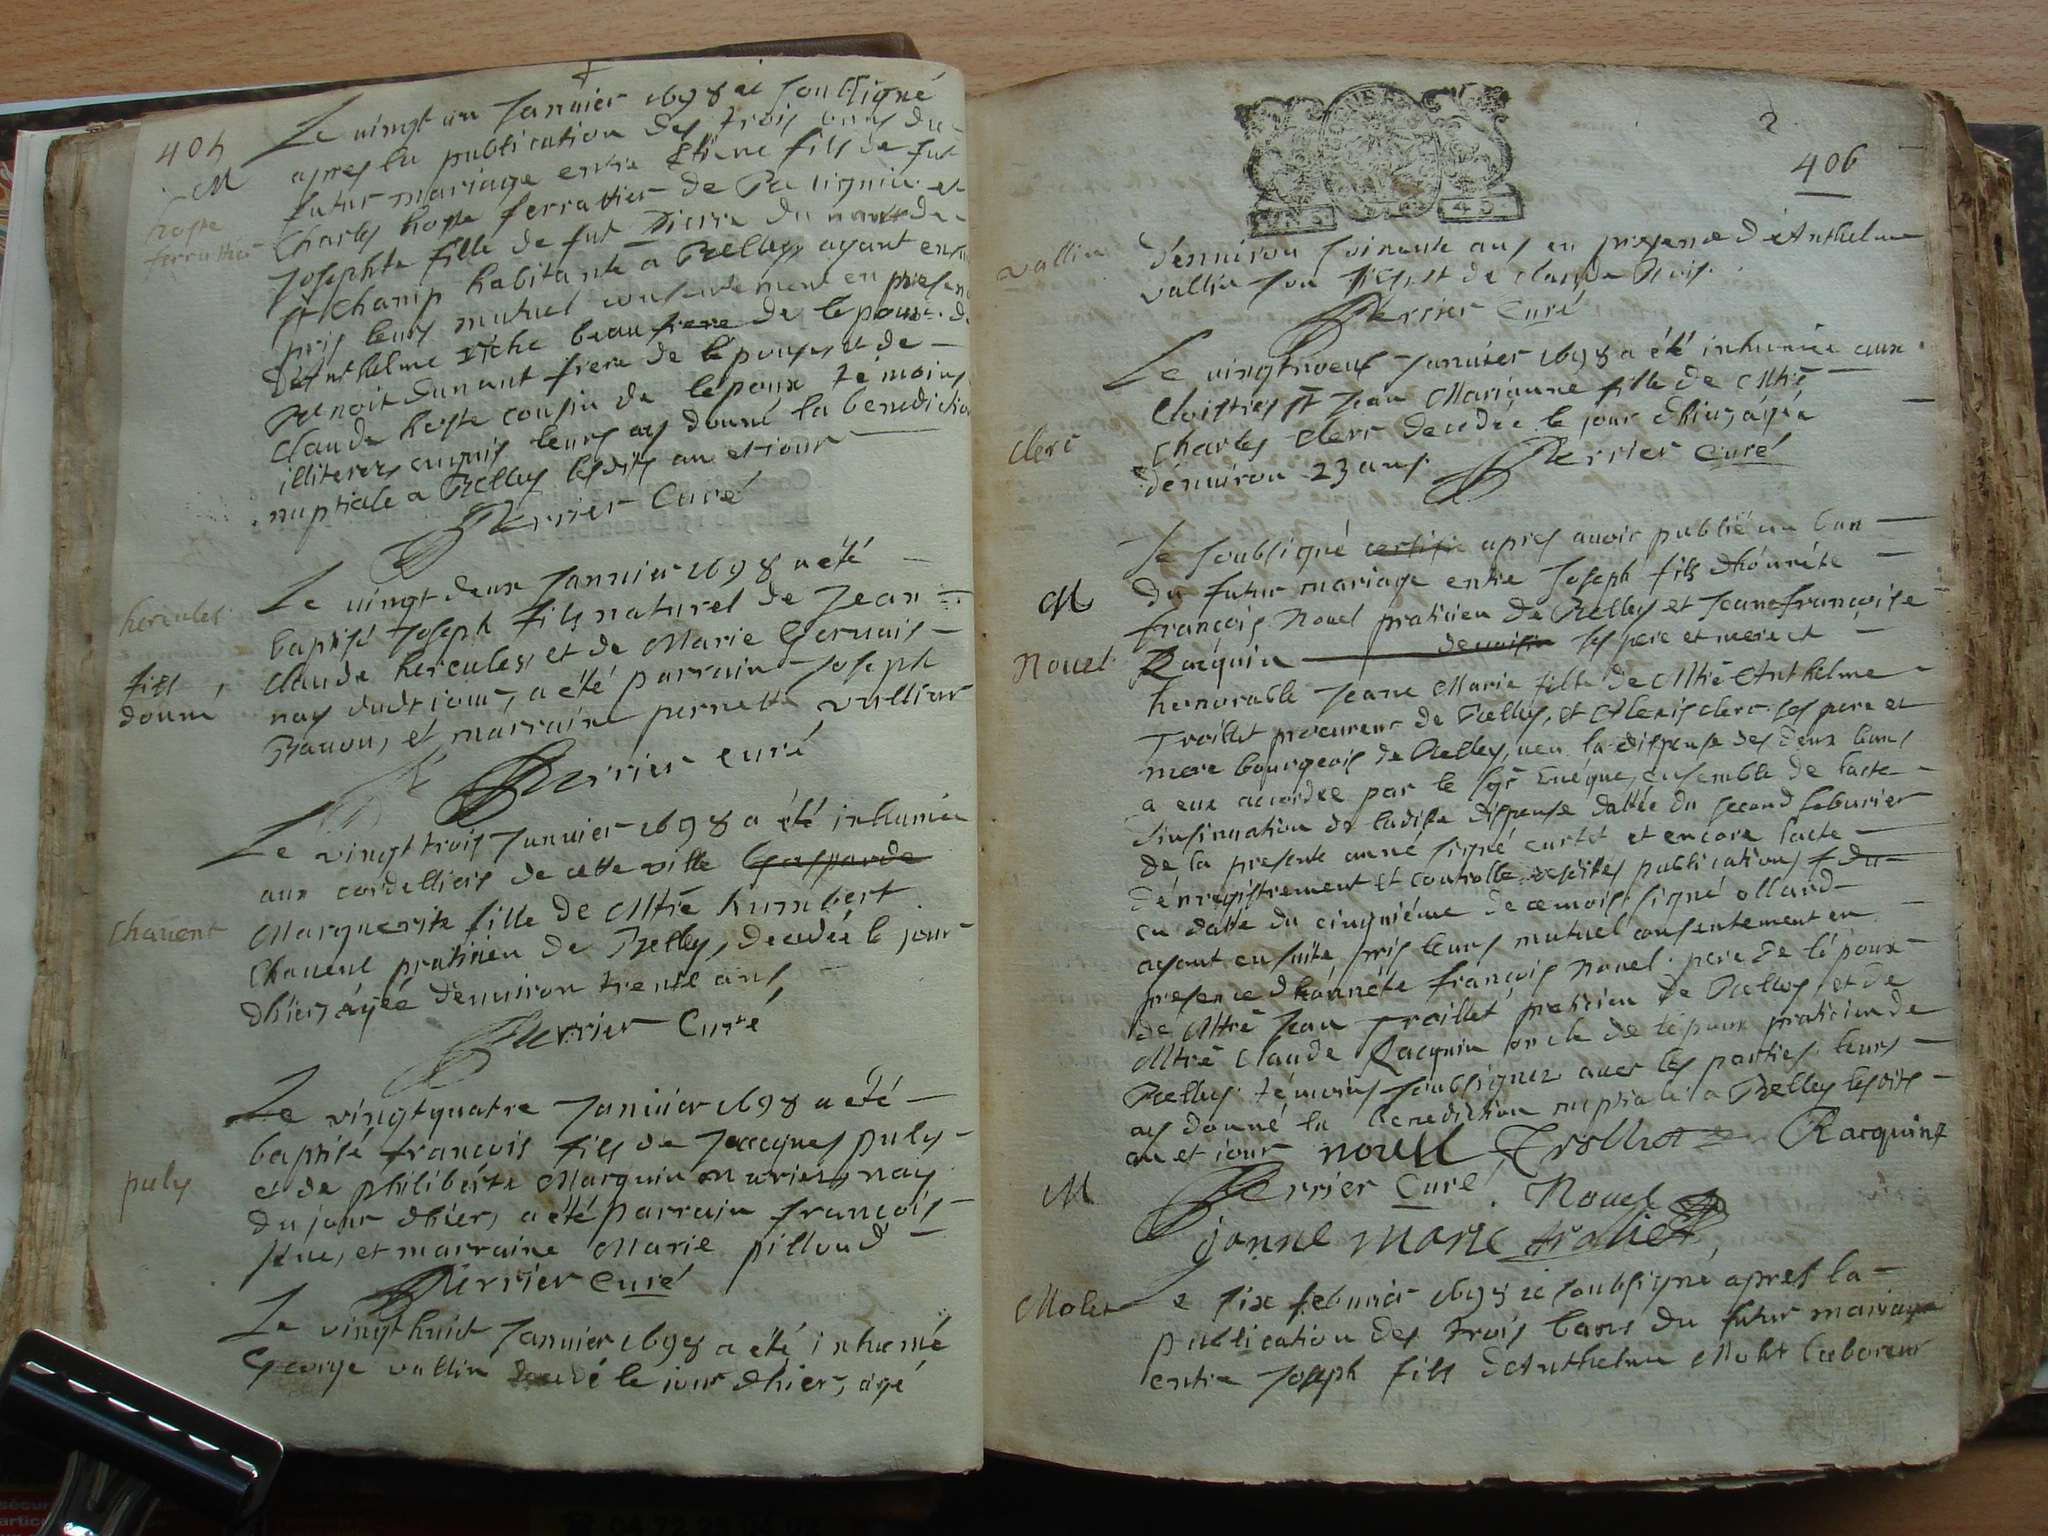 405
M
hoste
ferrattier
Le vingt un Janvier 1698 ie soubsigné
apres la publication des trois bans du
futur mariage entre Etiene fils de fut
Charles hoste ferrattier de et
Josephte fille de fut Pierre du
St Champ habitante a Belley ayant ensuite
pris leurs mutuel consentement en presence
d'Anthelme riche beaufrere de lepoux de
Benoit dunant frere de lépouse et de
Claude hoste cousin de lepoux témoins
illiterez enquis leurs ay donné la benediction
nuptiale a Belley lesdits an et jour
Perrier Curé
hercules
fils
donné
Le vingt deux Janvier 1698 a été
baptisé Joseph fils naturel de Jean
Claude hercules et de Marie Gervais
nay dudt jour, a été parrain Joseph
et marraine pernette vullier
Perrier curé
Chavent
Le vingt trois Janvier 1698 a été inhumée
aux cordelliers de cette ville Gasparde
Marguerite fille de Mtre humbert
Chavent pratitien de Belley, decedée le jour
dhier, agée denviron trente ans,
Perrier Curé
puly
Le vingtquatre Janvier 1698 a été
baptisé françois fils de Jacques puly
et de philiberte Marquin mariés, nay
du jour dhier, a été parrain françois
et marraine Marie pilloud
Perrier curé
Le vingt huict Janvier 1698 a été inhumé
George vallin decedé le jour dhier, agé
2
406
vallin
d'environ soixante ans en presence d'Anthelme
vallin son fils, et de Claude
Perrier Curé
Clerc
Le vingtneuf Janvier 1698 a été inhumée aux
Cloistres St Jean Marianne fille de Mtre
Charles Clerc decedée le jour dhier, agée
d'environ 23 ans.
Perrier curé
M
Nouel
Je soubsigné certifie apres avoir publié un ban
du futur mariage entre Joseph fils dhonnéte
françois Nouel pratitien de Belley et Jeanefrancoise
Racquin ses pere et mere et
honnorable Jeane Marie fille de Mtre Anthelme
Trollet procureur de Belley, et Alexis clerc ses pere et
mere bourgeois de Belley, veu la dispense des deux bans
a eux accordée par le sgr Evéque, ensemble de lacte
d'insinuation de ladite dispense dattée du second feburier
de la presente anné signé curtet et encore lacte
dénregistrement et controlle desdites publications
en datte du cinquiéme de cemois signé olland
ayant ensuite pris leurs mutuel consentement en
presence dhonnéte françois Nouel pere de lépoux
de Mtre Jean Trollet pratitien de Belley et de
Mtre Claude Racquin oncle de lépoux pratitien de
Belley témoins soubsignez avec les parties leurs
ay donné la benediction nuptiale a Belley lesdits
an et jour nouel Trollet Racquin
Perrier Curé . Nouel
M
janne marie trollet
Molet
Le six feburier 1698 ie soubsigné apres la
publication des trois bans du futur mariage
entre Joseph fils dAnthelme Molet laboreur